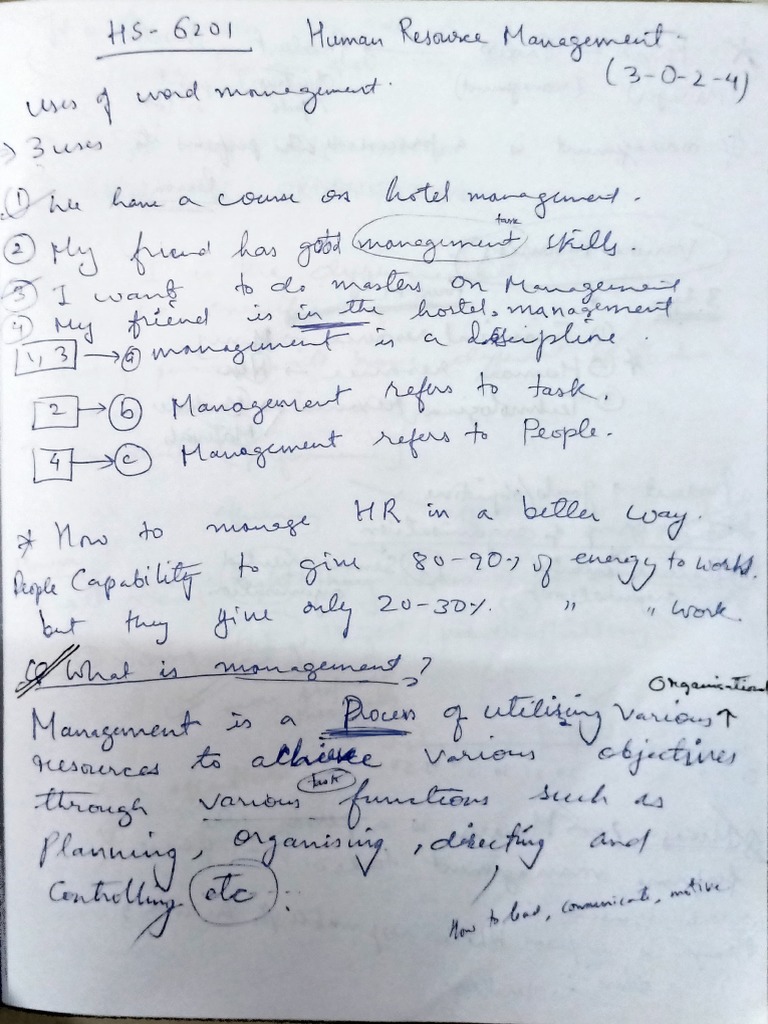 HS-6201 Human Resource Management.
(3-0-2-4)
Uses of word management.
⇒ 3 uses
① We have a course on hotel management.
task
② My friend has good management skills.
③ I want to do masters on Management
④ My friend is in the hostel management
1, 3 → ⓐ management is a discipline.
2 → ⓑ Management refers to task.
4 → ⓒ Management refers to People.
* How to manage HR in a better way.
People Capability to give 80-90% of energy to works.
but they give only 20-30% " " work.
Q What is management?
Organisational
Management is a Process of utilising various ↑
resources to achieve various objectives
task
through various functions such as
Planning, organising, directing and
Controlling etc.
How to lead, communicate, motive